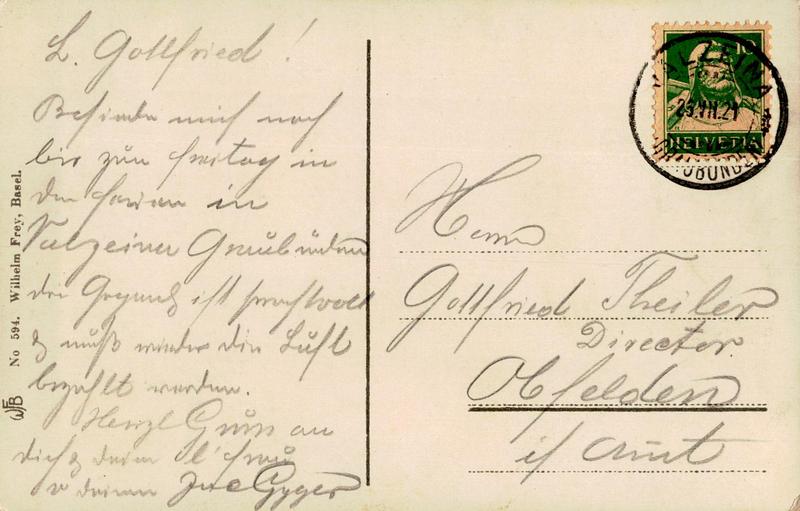 L. Gottfried!
Befinde mich noch
bis zum Freitag in
den Ferien in
Valzeina Graubünden
die Gegend ist prachtvoll
& muß wieder die Luft
bezahlt werden.
Herzl Gruss an
dich & deine l' Frau
v deinem Gyger
No 594. Wilhelm Frey, Basel.
WFB
10
HELVETIA
VALZEINA
23.VII.21
(GRAUBÜNDEN)
Herrn
Gottfried Theiler
Director
Obfelden
i/ Amt